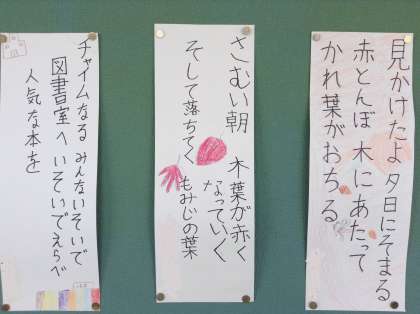 見かけたよ 夕日にそまる
赤とんぼ 木にあたって
かれ葉がおちる
さむい朝 木葉が赤く
なっていく
そして落ちてく もみじの葉
チャイムなる みんないそいで
図書室へ いそいでえらべ
人気な本を